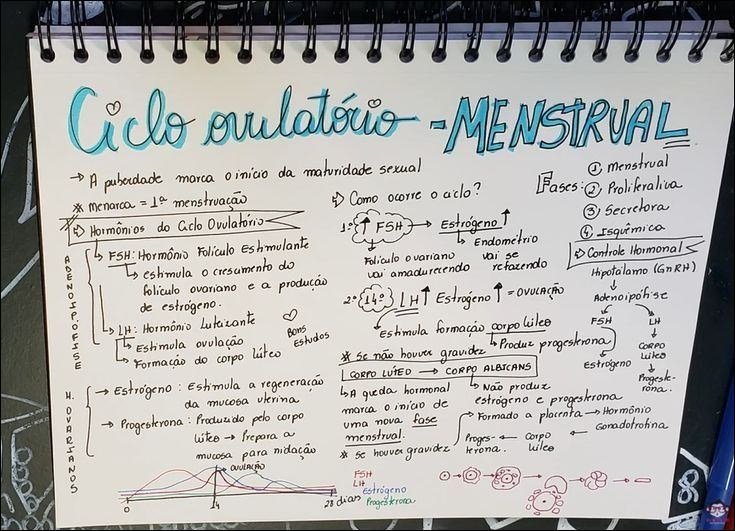 Ciclo ovulatório - MENSTRUAL
→ A puberdade marca o início da maturidade sexual
* Menarca = 1ª menstruação
Hormônios do Ciclo Ovulatório
ADENOIPÓFISE
FSH: Hormônio Folículo Estimulante
estimula o crescimento do
folículo ovariano e a produção
de estrógeno.
LH: Hormônio Luteizante
Estimula ovulação
Formação do corpo lúteo
Bons
Estudos
H. OVARIANOS
→ Estrógeno: Estimula a regeneração
da mucosa uterina
→ Progesterona: Produzido pelo corpo
lúteo → Prepara a
mucosa para nidação
OVULAÇÃO
0
14
28 dias
FSH
LH
Estrógeno
Progesterona
⇨ Como ocorre o ciclo?
1º ↑ FSH → Estrógeno ↑
Folículo ovariano
vai amadurecendo
Endométrio
vai se
refazendo
2º 14º LH ↑ Estrógeno ↑ = OVULAÇÃO
Estimula formação corpo lúteo
Produz progesterona
* Se não houver gravidez
CORPO LÚTEO → CORPO ALBICANS
Não produz
estrógeno e progesterona
→ A queda hormonal
marca o início de
uma nova fase
menstrual.
* Se houver gravidez
Formado a placenta → Hormônio
Gonadotrofina
← Corpo
lúteo
← Proges-
terona.
Fases:
① Menstrual
② Proliferativa
③ Secretora
④ Isquêmica
⇨ Controle Hormonal
Hipotálamo (GnRH)
Adenoipófise
FSH
LH
Estrógeno
CORPO
lúteo
Progeste-
rona.